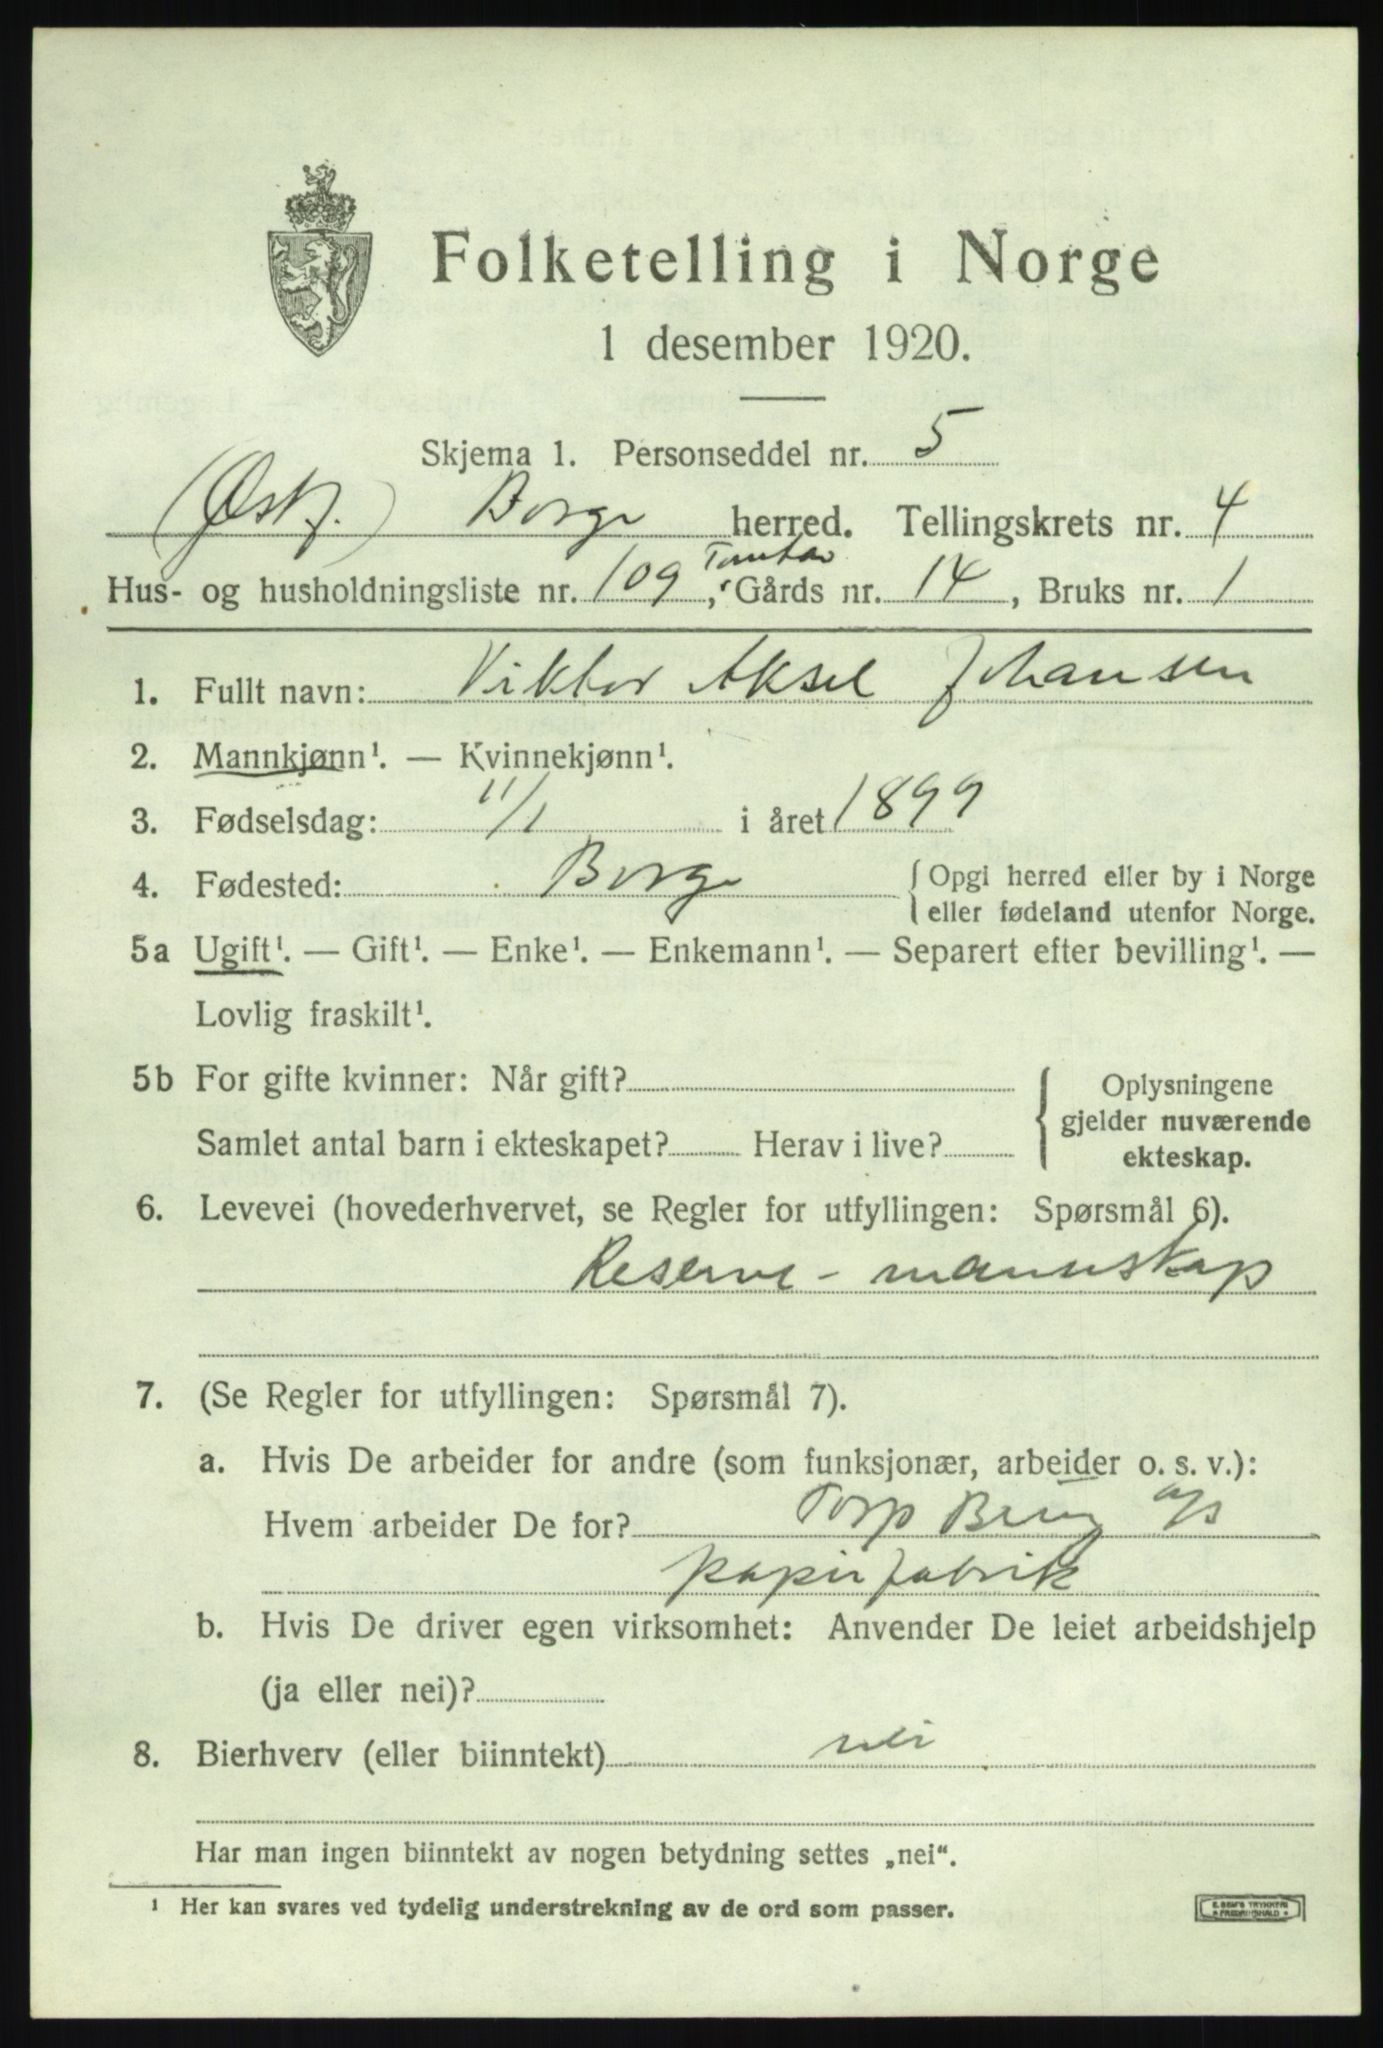 Folketelling i Norge
1 desember 1920.
Skjema 1. Personseddel nr. 5
(Østf.) Borge herred. Tellingskrets nr. 4
Hus- og husholdningsliste nr. 109, Gårds nr. 14, Bruks nr. 1
1. Fullt navn: Viktor Aksel Johansen
2. Mannkjønn¹. — Kvinnekjønn¹.
3. Fødselsdag: 11/1 i året 1899
4. Fødested: Borge { Opgi herred eller by i Norge
eller fødeland utenfor Norge.
5a Ugift¹. — Gift¹. — Enke¹. — Enkemann¹. — Separert efter bevilling¹. —
Lovlig fraskilt¹.
5b For gifte kvinner: Når gift?
Samlet antal barn i ekteskapet? Herav i live?
Oplysningene
gjelder nuværende
ekteskap.
6. Levevei (hovederhvervet, se Regler for utfyllingen: Spørsmål 6).
Reserve - mannskap
7. (Se Regler for utfyllingen: Spørsmål 7).
a. Hvis De arbeider for andre (som funksjonær, arbeider o. s. v.):
Hvem arbeider De for? Torp Brug a/s
papirfabrik
b. Hvis De driver egen virksomhet: Anvender De leiet arbeidshjelp
(ja eller nei)?
8. Bierhverv (eller biinntekt) nei
Har man ingen biinntekt av nogen betydning settes „nei“.
¹ Her kan svares ved tydelig understrekning av de ord som passer.
E. SEM'S TRYKKERI
FREDRIKSHALD